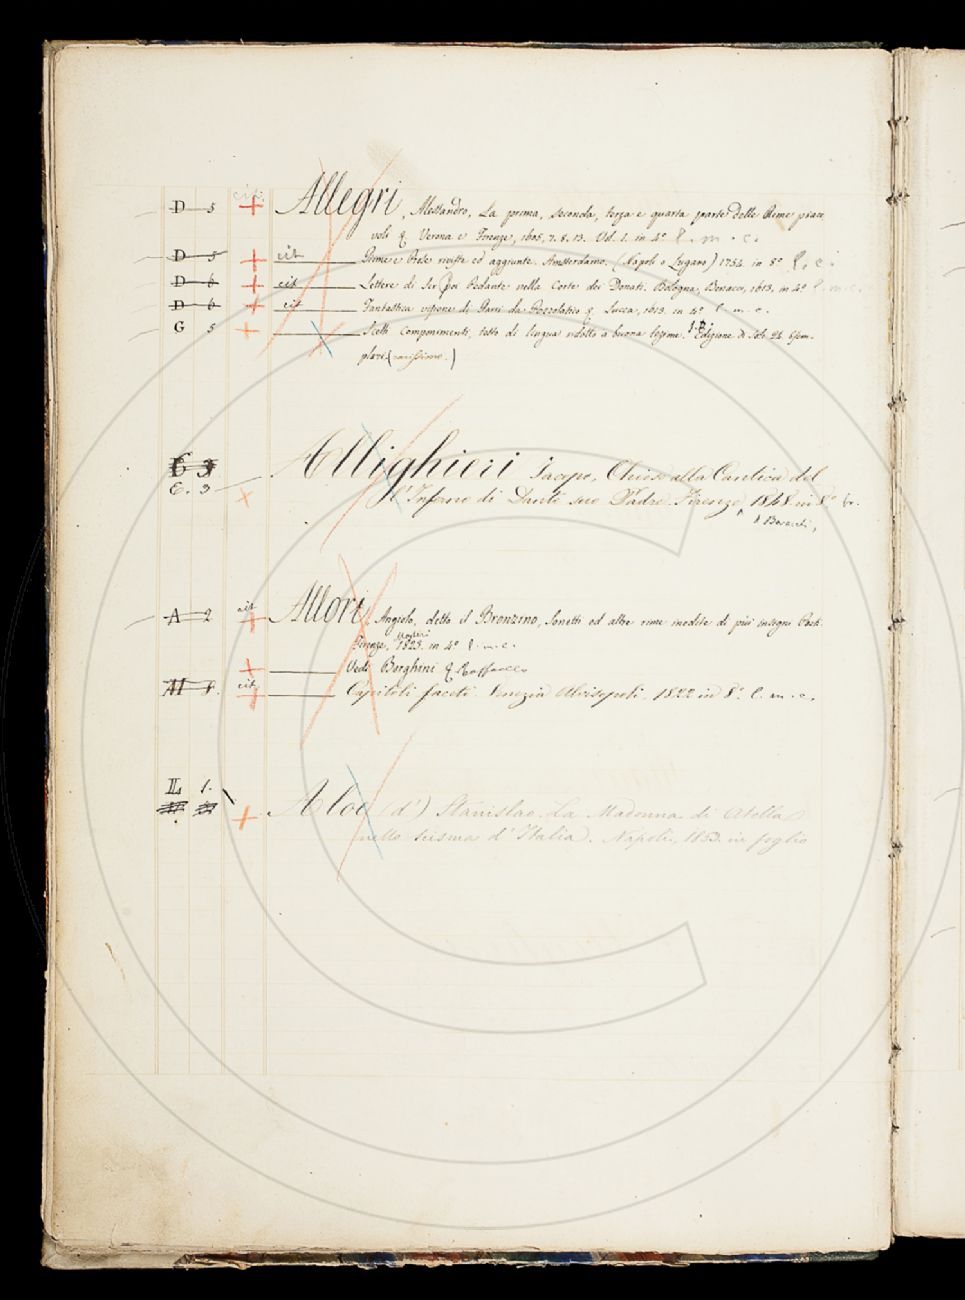 D 5 + cit. Allegri, Alessandro, La prima, seconda, terza e quarta parte delle Rime piace
voli &. Verona e Firenze, 1605, 7. 8. 13. Vol. 1. in 4º l. m. c.
D 5 + cit Rime e Prose riviste ed aggiunte. Amsterdamo. (Napoli o Lugano) 1754. in 8º l. c.
D 6 + cit Lettere di Ser Poi Pedante nella Corte dei Donati. Bologna, Bonacci, 1613. in 4º l. m. c.
D 6 + cit Fantastica visione di Parri da Pozzolatico &. Lucca, 1613. in 4º l. m. c.
G 5 + Scelti Componimenti, testo di lingua ridotto a buona lezione. Edizione di Soli 24 Esem-
plari. (rarissimo.)
E 3
E. 3 + Allighieri Jacopo, Chiose alla Cantica del
l'Inferno di Dante suo Padre. Firenze, 1848 in 8º br.
A 2 cit + Allori Angiolo, detto il Bronzino, Sonetti ed altre rime inedite di più insigni Poeti.
Firenze, Magheri 1823. in 4º l. m. c.
+ Vedi Borghini & Raffaello
M cit + Capitoli faceti. Venezia Alvisopoli, 1822 in 8º. l. m. c.
IL 1. + Aloe (d') Stanislao. La Madonna di Atella
nello scisma d'Italia. Napoli, 1853. in foglio